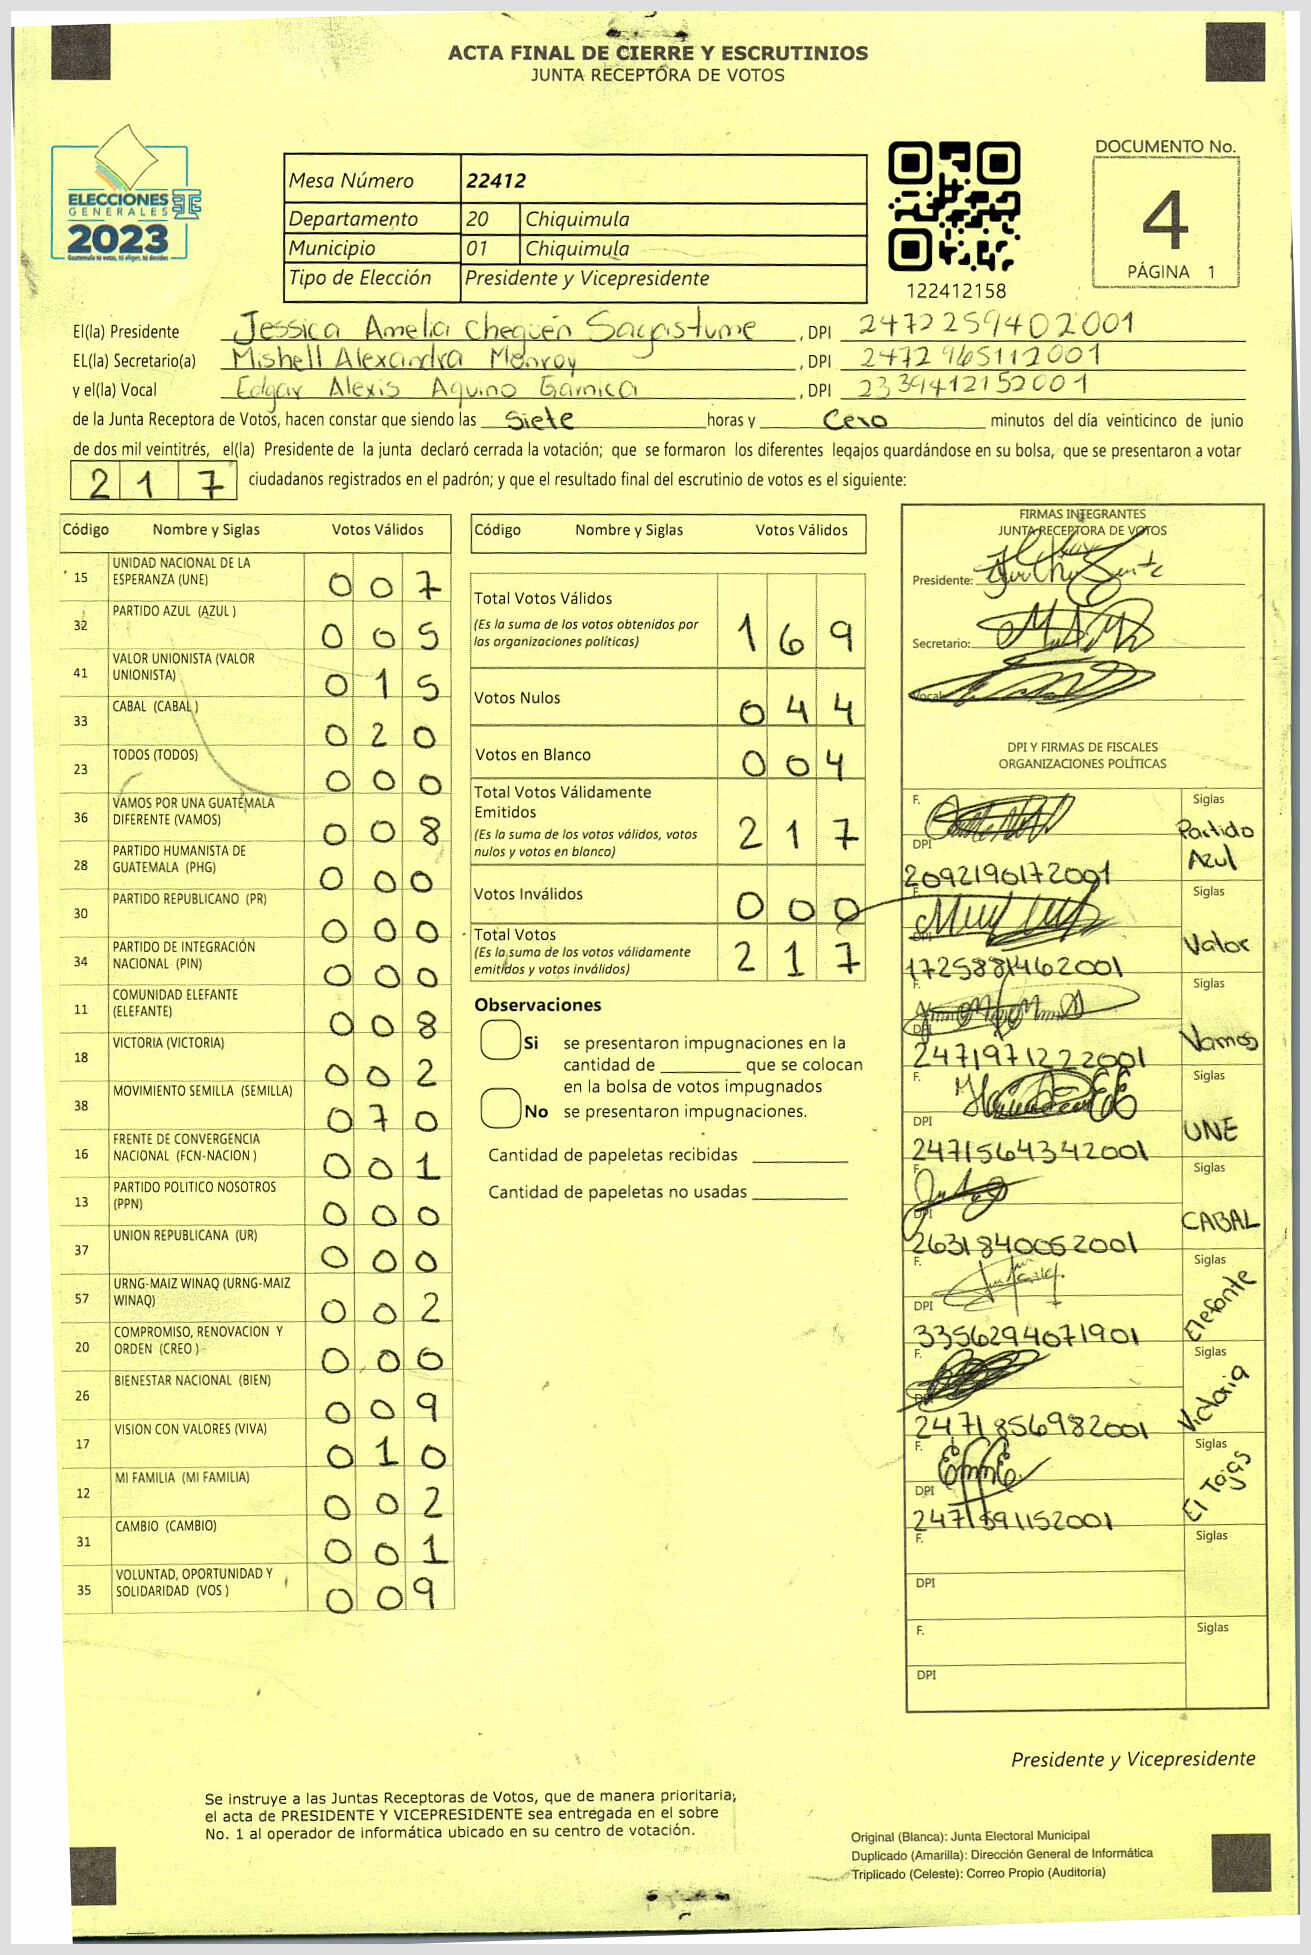 ACTA FINAL DE CIERRE Y ESCRUTINIOS
JUNTA RECEPTORA DE VOTOS
ELECCIONES
GENERALES
2023
Guatemala tú votas, tú eliges, tú decides
Mesa Número 22412
Departamento 20 Chiquimula
Municipio 01 Chiquimula
Tipo de Elección Presidente y Vicepresidente
122412158
DOCUMENTO No.
4
PÁGINA 1
El(la) Presidente Jessica Amelia Chequén Sagastume , DPI 2472259402001
EL(la) Secretario(a) Mishell Alexandra Monroy , DPI 2472965112001
y el(la) Vocal Edgar Alexis Aquino Garnica , DPI 2339412152001
de la Junta Receptora de Votos, hacen constar que siendo las Siete horas y Cero minutos del día veinticinco de junio
de dos mil veintitrés, el(la) Presidente de la junta declaró cerrada la votación; que se formaron los diferentes legajos guardándose en su bolsa, que se presentaron a votar
217 ciudadanos registrados en el padrón; y que el resultado final del escrutinio de votos es el siguiente:
Código Nombre y Siglas Votos Válidos
15 UNIDAD NACIONAL DE LA ESPERANZA (UNE) 007
32 PARTIDO AZUL (AZUL ) 005
41 VALOR UNIONISTA (VALOR UNIONISTA) 015
33 CABAL (CABAL ) 020
23 TODOS (TODOS) 000
36 VAMOS POR UNA GUATEMALA DIFERENTE (VAMOS) 008
28 PARTIDO HUMANISTA DE GUATEMALA (PHG) 000
30 PARTIDO REPUBLICANO (PR) 000
34 PARTIDO DE INTEGRACIÓN NACIONAL (PIN) 000
11 COMUNIDAD ELEFANTE (ELEFANTE) 008
18 VICTORIA (VICTORIA) 002
38 MOVIMIENTO SEMILLA (SEMILLA) 070
16 FRENTE DE CONVERGENCIA NACIONAL (FCN-NACION ) 001
13 PARTIDO POLITICO NOSOTROS (PPN) 000
37 UNION REPUBLICANA (UR) 000
57 URNG-MAIZ WINAQ (URNG-MAIZ WINAQ) 002
20 COMPROMISO, RENOVACION Y ORDEN (CREO ) 000
26 BIENESTAR NACIONAL (BIEN) 009
17 VISION CON VALORES (VIVA) 010
12 MI FAMILIA (MI FAMILIA) 002
31 CAMBIO (CAMBIO) 001
35 VOLUNTAD, OPORTUNIDAD Y SOLIDARIDAD (VOS ) 009
Código Nombre y Siglas Votos Válidos
Total Votos Válidos 169
(Es la suma de los votos obtenidos por
las organizaciones políticas)
Votos Nulos 044
Votos en Blanco 004
Total Votos Válidamente
Emitidos 217
(Es la suma de los votos válidos, votos
nulos y votos en blanco)
Votos Inválidos 000
Total Votos 217
(Es la suma de los votos válidamente
emitidos y votos inválidos)
Observaciones
Si se presentaron impugnaciones en la
cantidad de ________ que se colocan
en la bolsa de votos impugnados
No se presentaron impugnaciones.
Cantidad de papeletas recibidas
Cantidad de papeletas no usadas
FIRMAS INTEGRANTES
JUNTA RECEPTORA DE VOTOS
Presidente:
Secretario:
Vocal
DPI Y FIRMAS DE FISCALES
ORGANIZACIONES POLÍTICAS
F. Siglas
DPI Partido Azul
2092190172001
F. Siglas
DPI Valor
1725881462001
F. Siglas
DPI Vamos
2471971222001
F. Siglas
DPI UNE
2471564342001
F. Siglas
DPI CABAL
2631840052001
F. Siglas
DPI Elefante
3356294071901
F. Siglas
DPI Victoria
2471856982001
F. Siglas
DPI
2471591152001
F. Siglas
DPI
F. Siglas
DPI
Presidente y Vicepresidente
Se instruye a las Juntas Receptoras de Votos, que de manera prioritaria,
el acta de PRESIDENTE Y VICEPRESIDENTE sea entregada en el sobre
No. 1 al operador de informática ubicado en su centro de votación.
Original (Blanca): Junta Electoral Municipal
Duplicado (Amarilla): Dirección General de Informática
Triplicado (Celeste): Correo Propio (Auditoría)